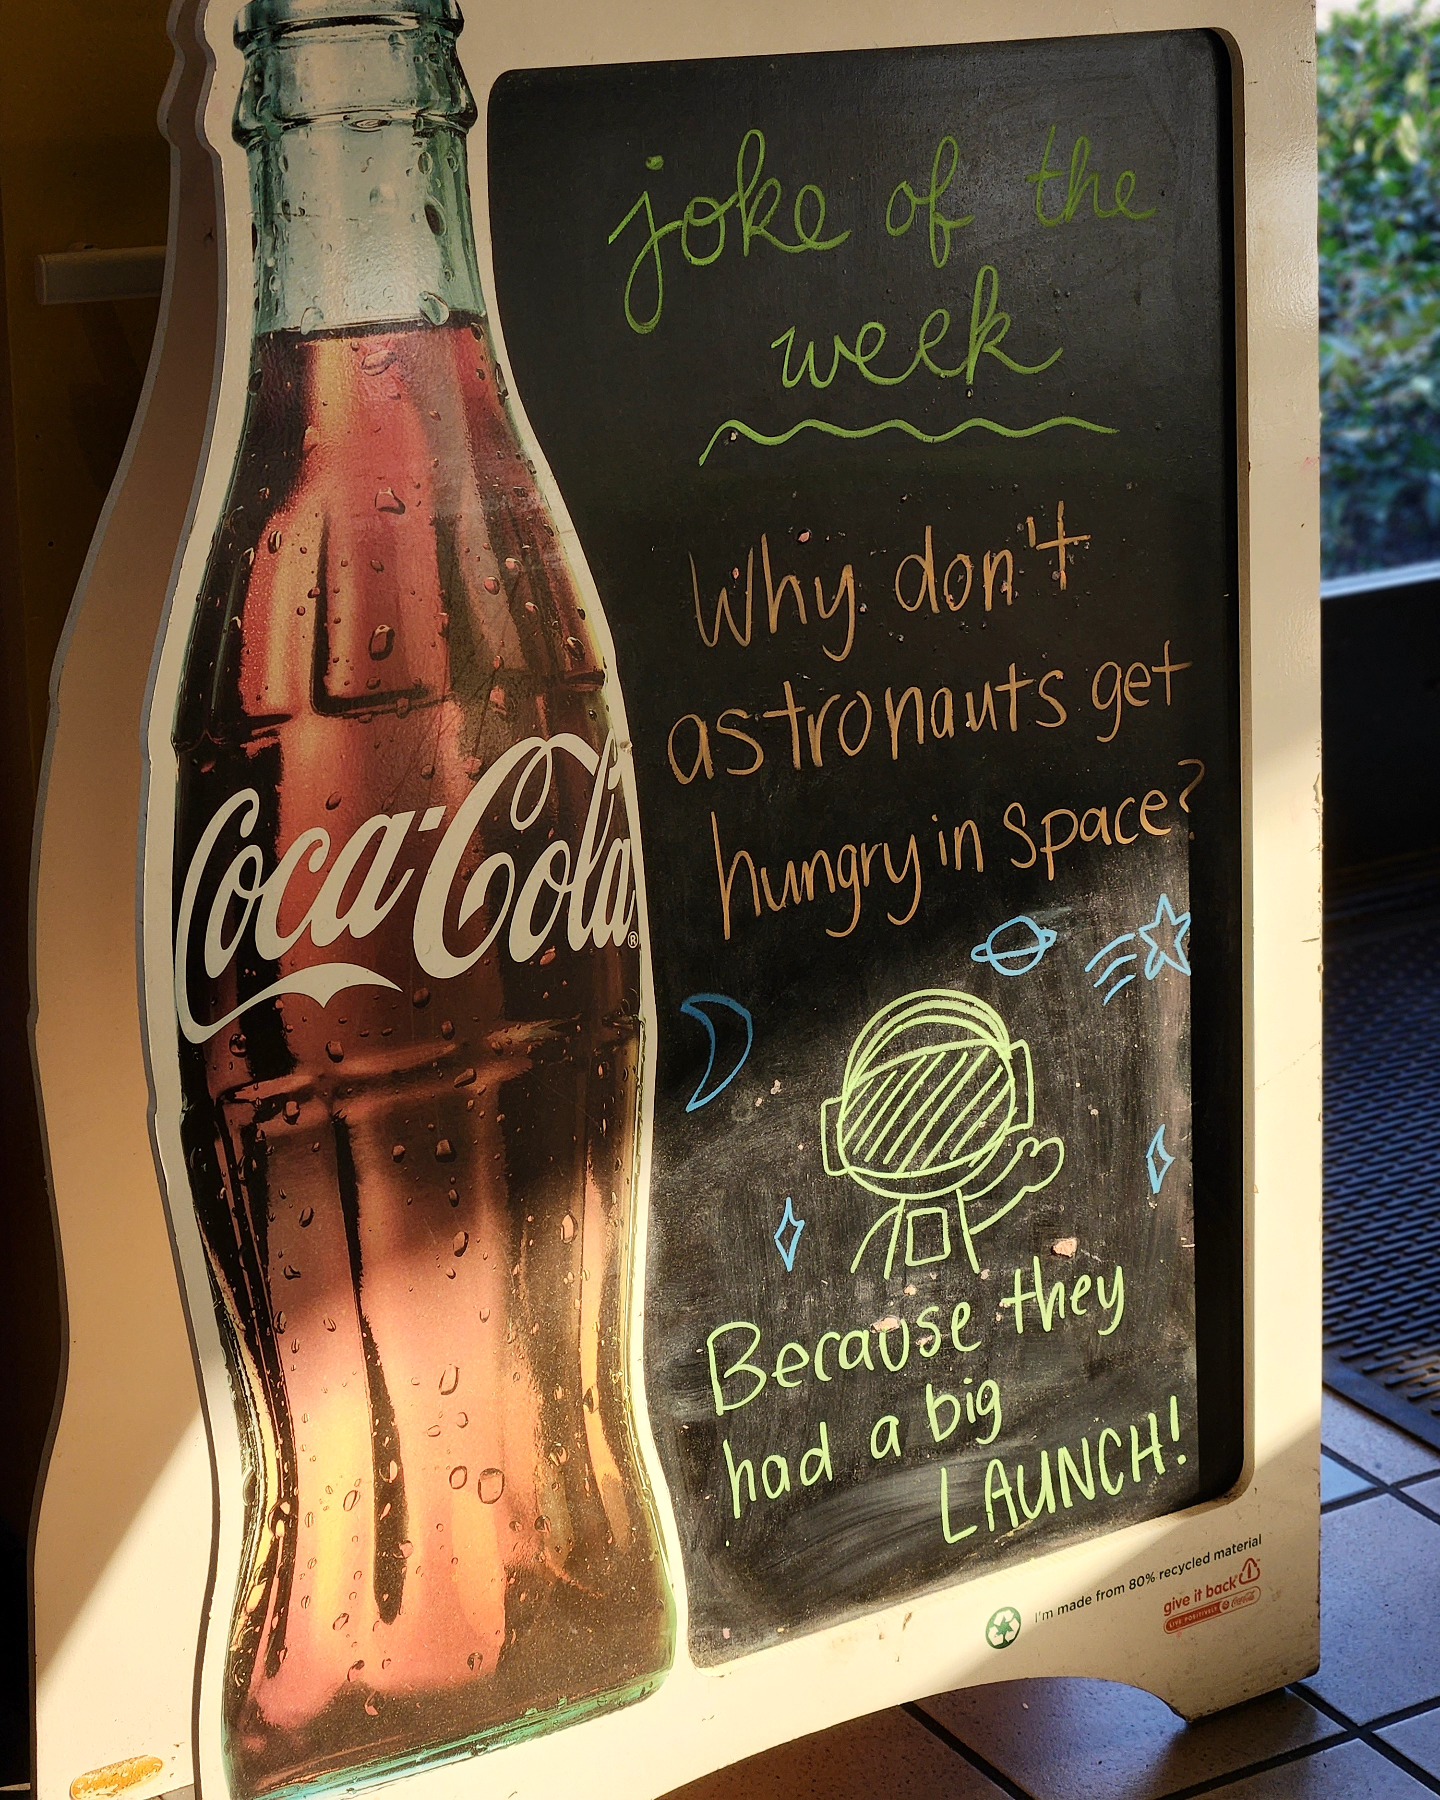 joke of the
week
Why don't
astronauts get
hungry in space?
Because they
had a big
LAUNCH!
Coca-Cola®
I'm made from 80% recycled material
give it back
LIVE POSITIVELY Coca-Cola